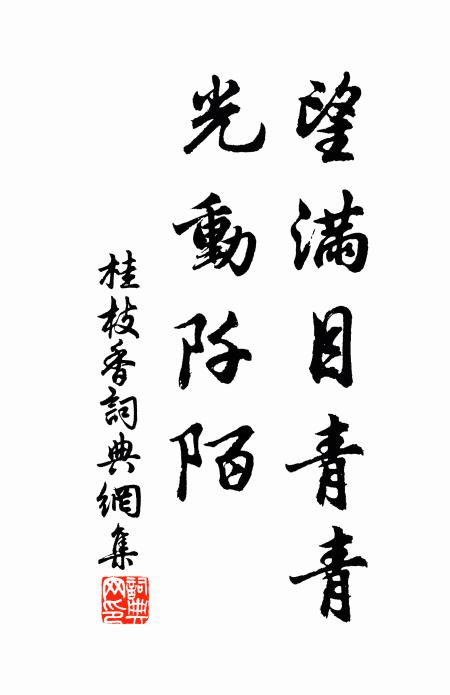 望滿目青青
光動阡陌
桂枝香詞典網集
詞典
网印